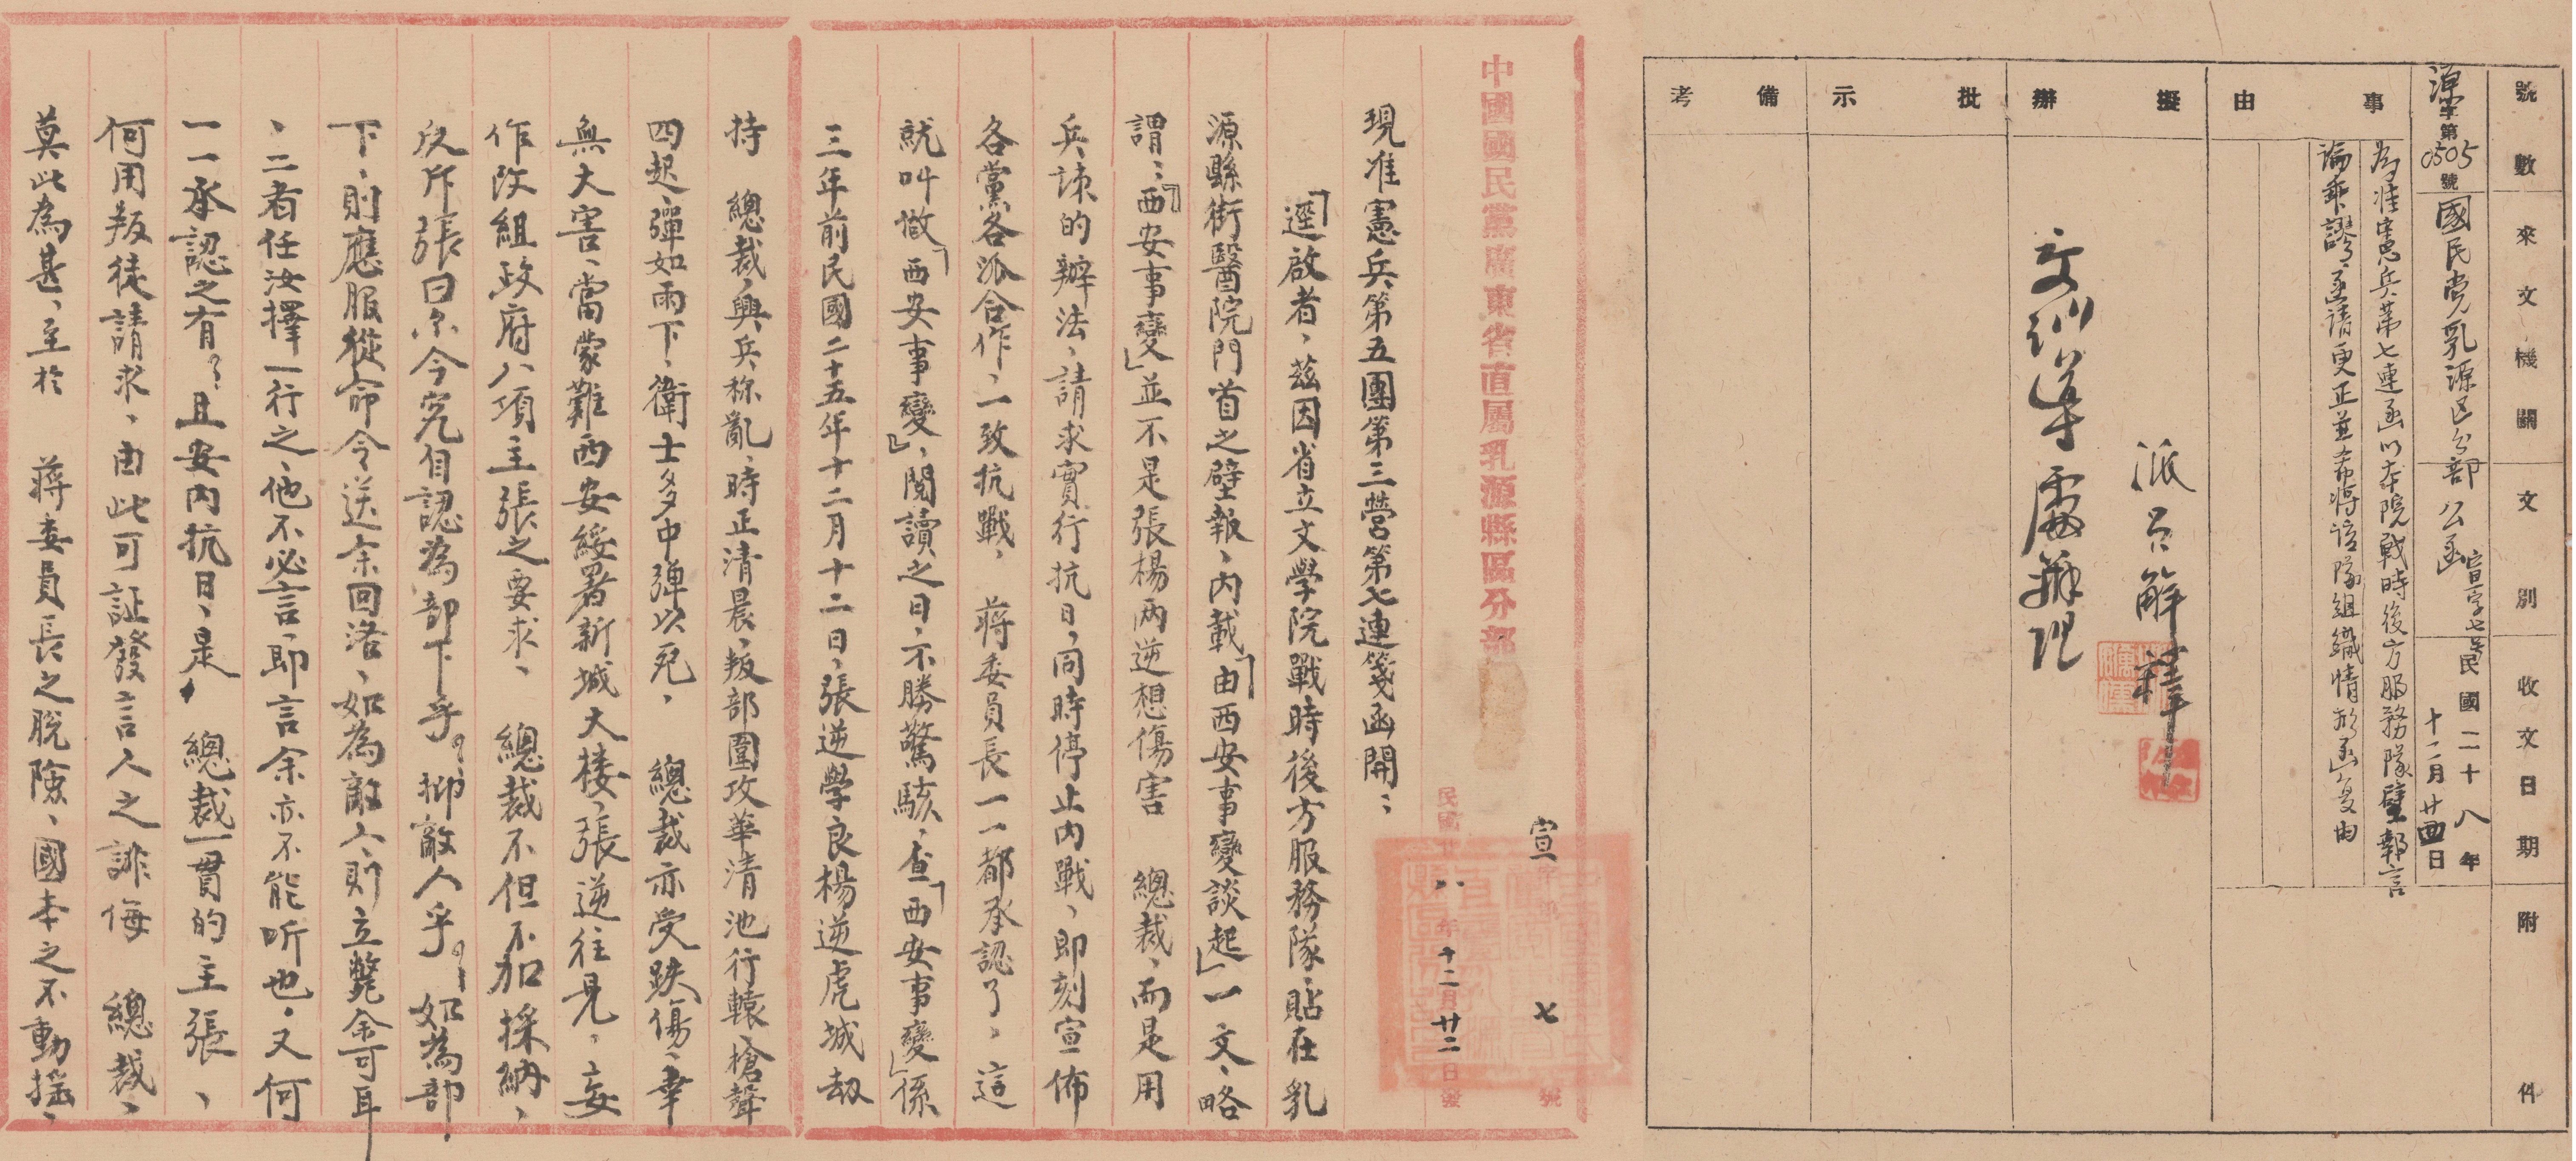 號數
來文機關
文別
收文日期
附件
源字第0505號
國民党乳源区分部
公函
宣字七號
民國二十八年
十二月廿四日
事由
為准憲兵第七連函以本院戰時後方服務隊壁報言
論乖謬、函請更正並希將該隊組織情形函复由
擬辦
派員解釋
批示
交训導處辦理
備考
中國國民黨廣東省直屬乳源縣區分部
宣字第七號
民國廿八年十二月廿三日發
現准憲兵第五團第三營第七連箋函開：
「逕啟者、茲因省立文學院戰時後方服務隊、貼在乳
源縣街醫院門首之壁報、內載「由西安事變談起」一文、略
謂：「『西安事變』並不是張楊兩逆想傷害　總裁、而是用
兵諫的辦法、請求實行抗日、同時停止內戰、即刻宣佈
各黨各派合作、一致抗戰、　蔣委員長一一都承認了、這
就叫做『西安事變』」、閱讀之日、不勝驚駭、查「西安事變」係
三年前民國二十五年十二月十二日、張逆學良楊逆虎城劫
持　總裁、興兵称亂、時正清晨、叛部圍攻華清池行轅、槍聲
四起、彈如雨下、衛士多中彈以死、　總裁亦受跌傷、幸
無大害、當蒙難西安綏署新城大楼、張逆往見、妄
作改組政府八項主張之要求、　總裁不但不加採納、
反斥張曰尔今究自認為部下乎？抑敵人乎？如為部
下、則應服從命令送余回洛、如為敵人、則立斃余可耳
、二者任汝擇一行之、他不必言、即言余亦不能听也、又何
一一承認之有？且安內抗日、是　總裁一貫的主張、
何用叛徒請求、由此可証發言人之誹侮　總裁、
莫此為甚、至於　蔣委員長之脫險、國本之不動搖、